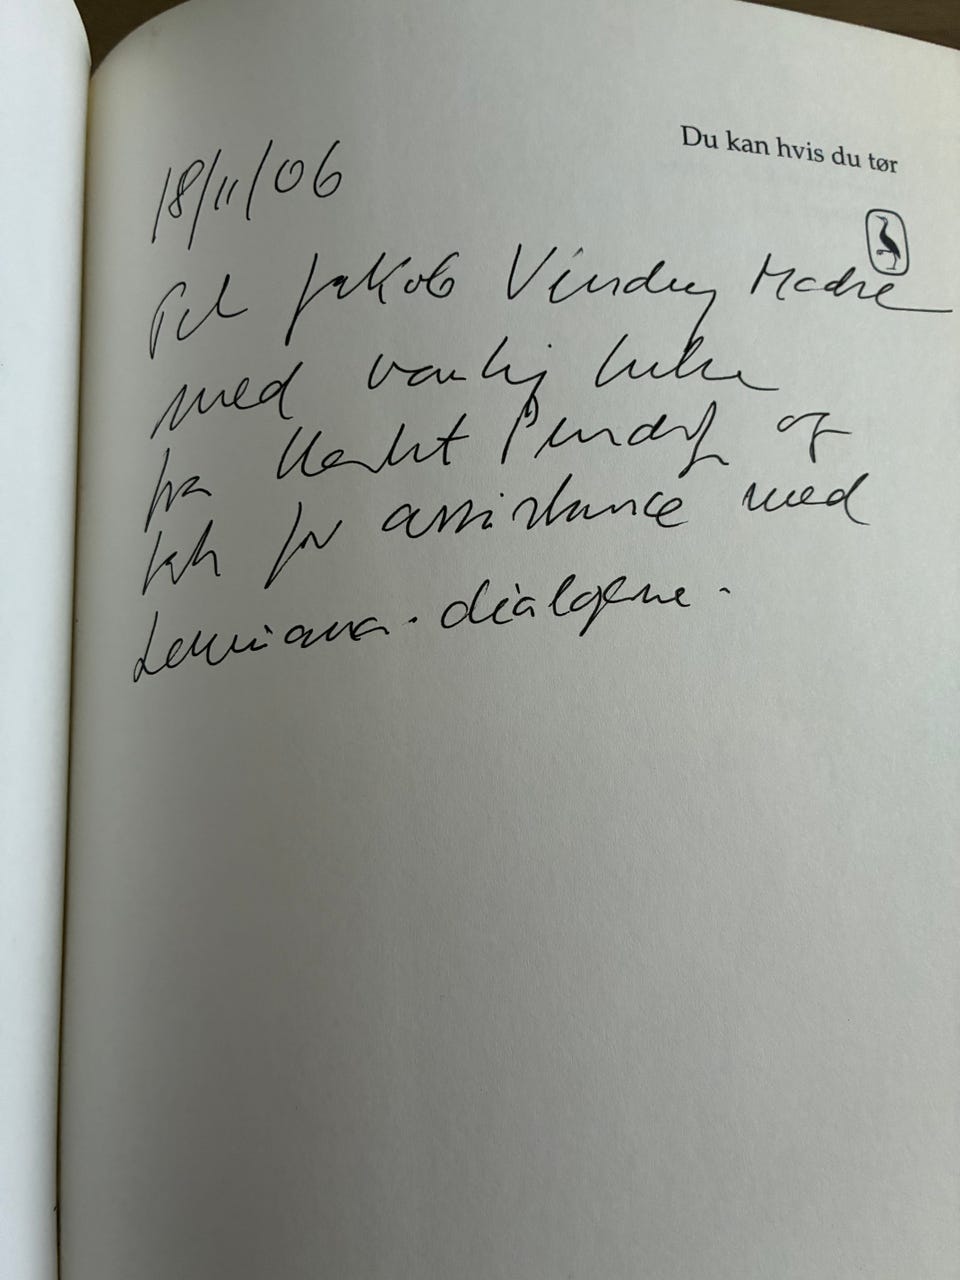 Du kan hvis du tør
18/11/06
Til Jakob Vinding Madse
med vanlig hilsen
fra Herbert Pundik og
tak for assistance med
Louisiana-dialogerne.